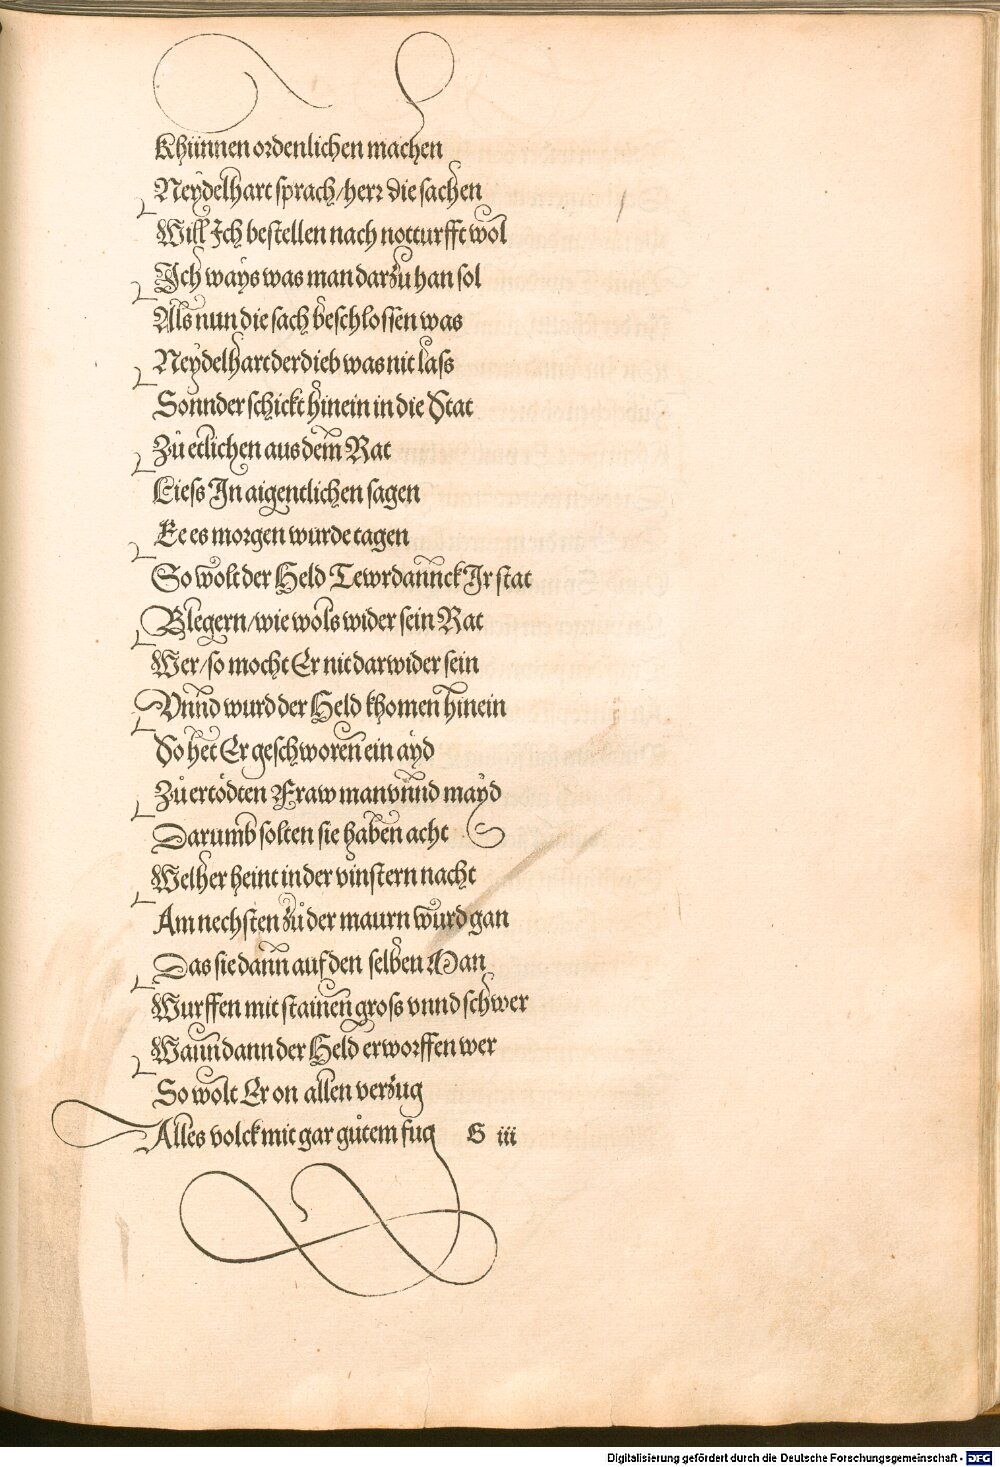 Khünnen ordenlichen machen
Neydelhart sprach/herr die sachen
Will Ich bestellen nach notturfft wol
Ich ways was man darzu han sol
Als nun die sach beschlossen was
Neydelhart der dieb was nit lass
Sonnder schickt hinein in die Stat
Zů etlichen aus dem Rat
Liess In aigentlichen sagen
Ee es morgen wurde tagen
So wolt der Held Tewrdannck Ir stat
Blegern/wie wols wider sein Rat
Wer/so mocht Er nit darwider sein
Vnnd wurd der Held khomen hinein
So het Er geschworen ein ayd
Zů ertödten Fraw man vnnd mayd
Darumb solten sie haben acht
Welher heint in der vinstern nacht
Am nechsten zů der maurn wurd gan
Das sie dann auf den selben Man
Wurffen mit stainen gross vnnd schwer
Wann dann der Held erworffen wer
So wolt Er on allen verzug
Alles volck mit gar gůtem fug G iii
Digitalisierung gefördert durch die Deutsche Forschungsgemeinschaft - DFG